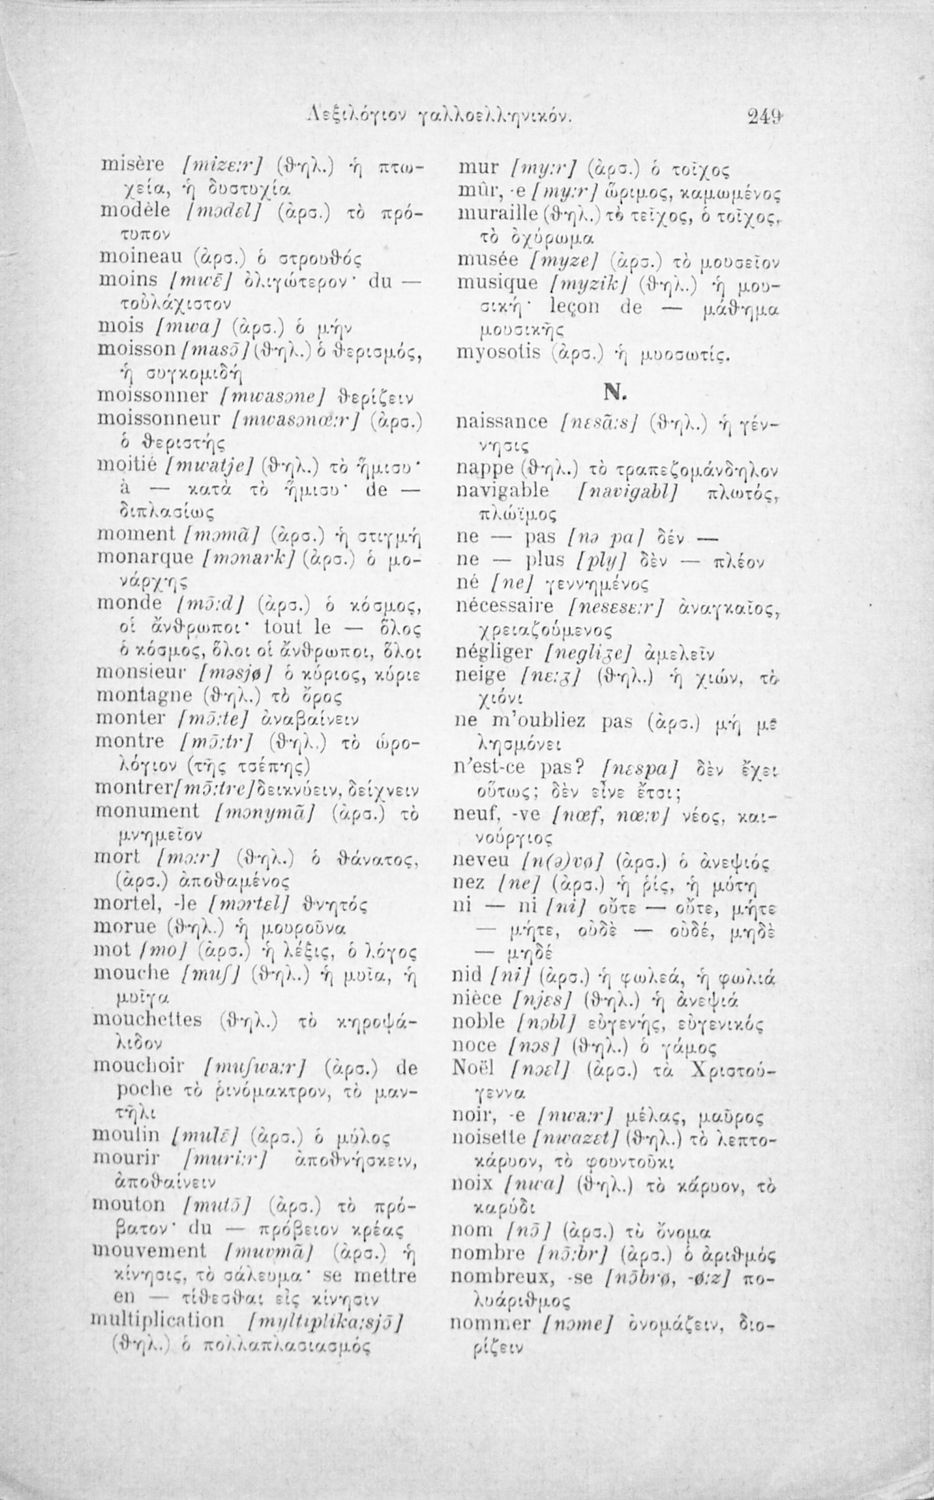 Λεξιλόγιον γαλλοελληνικόν. 249
misère [mize:r] (θηλ.) ἡ πτω-
χεία, ἡ δυστυχία
modèle [mɔdɛl] (ἀρσ.) τὸ πρό-
τυπον
moineau (ἀρσ.) ὁ στρουθός
moins [mwɛ̃] ὀλιγώτερον· du —
τοὐλάχιστον
mois [mwa] (ἀρσ.) ὁ μήν
moisson [masɔ̃] (θηλ.) ὁ θερισμός,
ἡ συγκομιδή
moissonner [mwasɔne] θερίζειν
moissonneur [mwasɔnœ:r] (ἀρσ.)
ὁ θεριστής
moitié [mwatje] (θηλ.) τὸ ἥμισυ·
à — κατὰ τὸ ἥμισυ· de —
διπλασίως
moment [mɔmɑ̃] (ἀρσ.) ἡ στιγμή
monarque [mɔnark] (ἀρσ.) ὁ μο-
νάρχης
monde [mɔ̃:d] (ἀρσ.) ὁ κόσμος,
οἱ ἄνθρωποι· tout le — ὅλος
ὁ κόσμος, ὅλοι οἱ ἄνθρωποι, ὅλοι
monsieur [məsjø] ὁ κύριος, κύριε
montagne (θηλ.) τὸ ὄρος
monter [mɔ̃:te] ἀναβαίνειν
montre [mɔ̃:tr] (θηλ.) τὸ ὡρο-
λόγιον (τῆς τσέπης)
montrer [mɔ̃:tre] δεικνύειν, δείχνειν
monument [mɔnymɑ̃] (ἀρσ.) τὸ
μνημεῖον
mort [mɔ:r] (θηλ.) ὁ θάνατος,
(ἀρσ.) ἀποθαμένος
mortel, -le [mɔrtɛl] θνητός
morue (θηλ.) ἡ μουροῦνα
mot [mo] (ἀρσ.) ἡ λέξις, ὁ λόγος
mouche [muʃ] (θηλ.) ἡ μυῖα, ἡ
μυῖγα
mouchettes (θηλ.) τὸ κηροψά-
λιδον
mouchoir [muʃwa:r] (ἀρσ.) de
poche τὸ ῥινόμακτρον, τὸ μαν-
τῆλι
moulin [mulɛ̃] (ἀρσ.) ὁ μύλος
mourir [muri:r] ἀποθνήσκειν,
ἀποθαίνειν
mouton [mutɔ̃] (ἀρσ.) τὸ πρό-
βατον· du — πρόβειον κρέας
mouvement [muvmɑ̃] (ἀρσ.) ἡ
κίνησις, τὸ σάλευμα· se mettre
en — τίθεσθαι εἰς κίνησιν
multiplication [myltiplika:sjɔ̃]
(θηλ.) ὁ πολλαπλασιασμός
mur [my:r] (ἀρσ.) ὁ τοῖχος
mûr, -e [my:r] ὥριμος, καμωμένος
muraille (θηλ.) τὸ τεῖχος, ὁ τοῖχος,
τὸ ὀχύρωμα
musée [myze] (ἀρσ.) τὸ μουσεῖον
musique [myzik] (θηλ.) ἡ μου-
σική· leçon de — μάθημα
μουσικῆς
myosotis (ἀρσ.) ἡ μυοσωτίς.
N.
naissance [nɛsɑ̃:s] (θηλ.) ἡ γέν-
νησις
nappe (θηλ.) τὸ τραπεζομάνδηλον
navigable [navigabl] πλωτός,
πλώϊμος
ne — pas [nə pa] δέν —
ne — plus [ply] δὲν — πλέον
né [ne] γεννημένος
nécessaire [nesɛsɛ:r] ἀναγκαῖος,
χρειαζούμενος
négliger [negliʒe] ἀμελεῖν
neige [nɛ:ʒ] (θηλ.) ἡ χιών, τὸ
χιόνι
ne m'oubliez pas (ἀρσ.) μή με
λησμόνει
n'est-ce pas? [nɛspa] δὲν ἔχει
οὕτως; δὲν εἶνε ἔτσι;
neuf, -ve [nœf, nœ:v] νέος, και-
νούργιος
neveu [n(ə)vø] (ἀρσ.) ὁ ἀνεψιός
nez [ne] (ἀρσ.) ἡ ῥίς, ἡ μύτη
ni — ni [ni] οὔτε — οὔτε, μήτε
— μήτε, οὐδὲ — οὐδέ, μηδὲ
— μηδέ
nid [ni] (ἀρσ.) ἡ φωλεά, ἡ φωλιά
nièce [njɛs] (θηλ.) ἡ ἀνεψιά
noble [nɔbl] εὐγενής, εὐγενικός
noce [nɔs] (θηλ.) ὁ γάμος
Noël [nɔɛl] (ἀρσ.) τὰ Χριστού-
γεννα
noir, -e [nwa:r] μέλας, μαῦρος
noisette [nwazɛt] (θηλ.) τὸ λεπτο-
κάρυον, τὸ φουντοῦκι
noix [nwa] (θηλ.) τὸ κάρυον, τὸ
καρύδι
nom [nɔ̃] (ἀρσ.) τὸ ὄνομα
nombre [nɔ̃:br] (ἀρσ.) ὁ ἀριθμός
nombreux, -se [nɔ̃brø, -ø:z] πο-
λυάριθμος
nommer [nɔme] ὀνομάζειν, διο-
ρίζειν